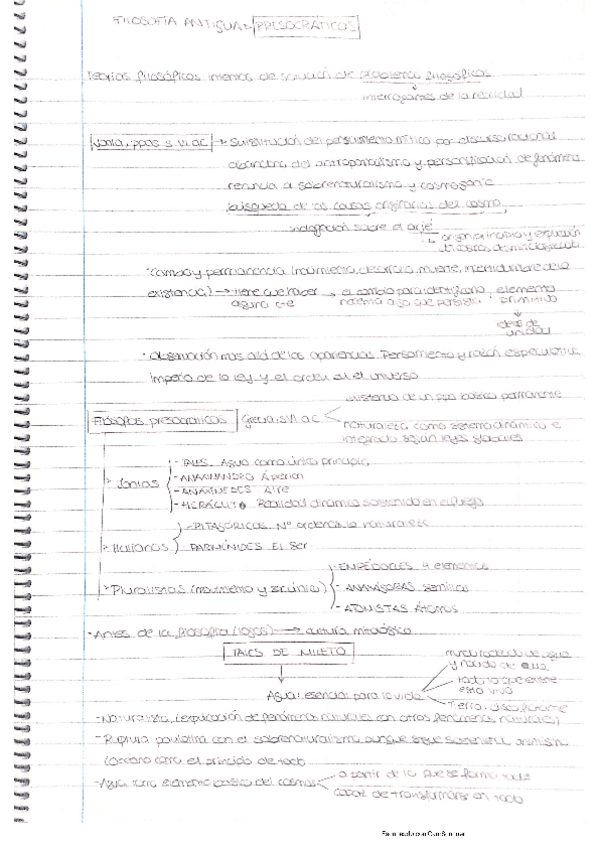 FILOSOFÍA ANTIGUA: PRESOCRÁTICOS
Teorías filosóficas intentos de solución de problemas filosóficos
interrogantes de la realidad
Jonia, ppos s. VI a.C → Sustitución del pensamiento mítico por discurso racional
abandono del antropomorfismo y personificación de fenómenos
renuncia al sobrenaturalismo y cosmogonía
búsqueda de las causas originarias del cosmos
indagación sobre el arjé
origen, principio y explicación
· Cambio y permanencia (nacimiento, desarrollo, muerte, incertidumbre de la
existencia) → tiene que haber → el cambio para identificarlo, elemento
alguna cte necesita algo que persista primitivo
idea de
unidad
· Observación más allá de las apariencias. Pensamiento y razón especulativa
Imperio de la ley y el orden el universo
existencia de un ppo básico permanente
Filósofos presocráticos Grecia, s. VI a.C
naturaleza como sistema dinámico e
integrado según leyes globales
- TALES. Agua como único principio
> Jonios - ANAXIMANDRO Ápeiron
- ANAXÍMENES Aire
- HERÁCLITO Realidad dinámica sostenida en el fuego
- PITAGÓRICOS. Nº ordena la naturaleza
> Italianos PARMÉNIDES El Ser
- EMPÉDOCLES 4 elementos
> Pluralistas (movimiento y) - ANAXÁGORAS semillas
- ATOMISTAS Átomos
· Antes de la filosofía (logos) → cultura mitológica
TALES DE MILETO
mundo rodeado de agua
y nacido de ella
Agua: esencial para la vida todo lo que existe
está vivo
Tierra: disco flotante
- Naturalista (explicación de fenómenos naturales con otros fenómenos naturales)
- Ruptura paulatina con el sobrenaturalismo aunque sigue sosteniendo
(Océano como el principio de todo
- Agua como elemento básico del cosmos a partir de lo que se forma todo
capaz de transformarse en todo